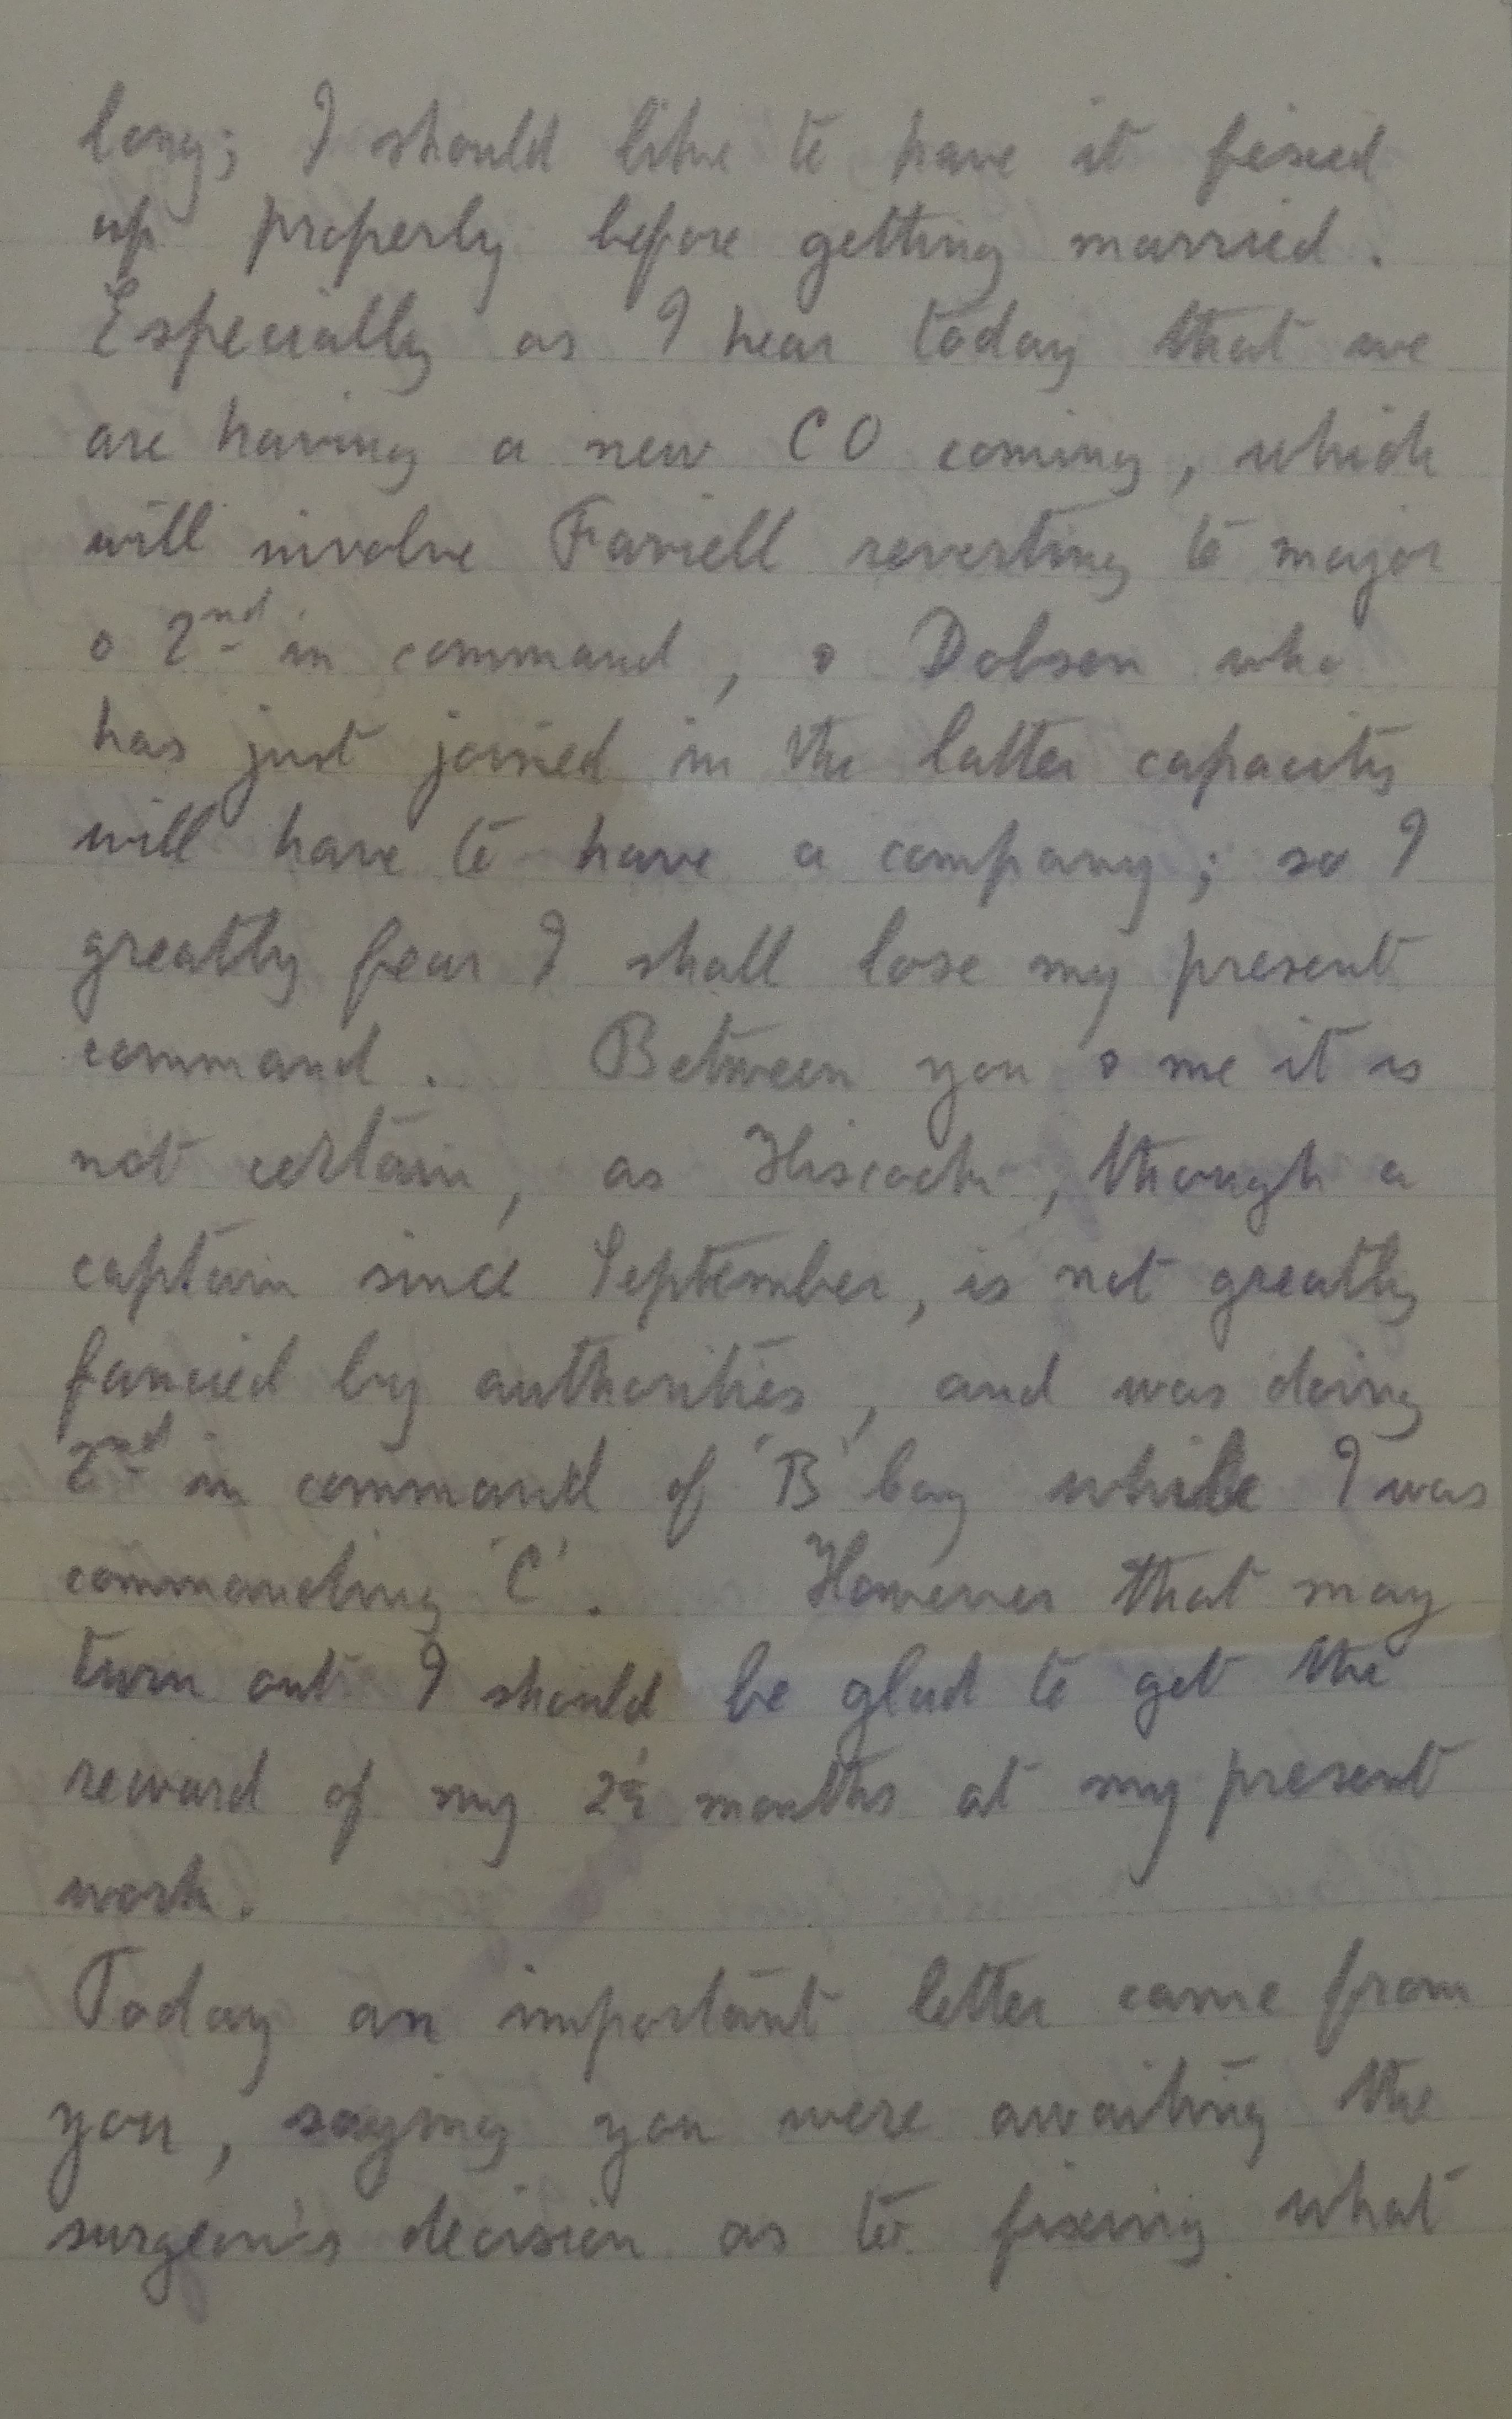 long; I should like to have it fixed
up properly before getting married.
Especially as I hear today that we
are having a new CO coming, which
will involve Farwell reverting to major
& 2nd in command, & Dobson who
has just joined in the latter capacity
will have to have a company; so I
greatly fear I shall lose my present
command. Between you & me it is
not certain, as Hiscock, though a
captain since September, is not greatly
fancied by authorities, and was doing
2nd in command of 'B' Coy while I was
commanding 'C'. However that may
turn out I should be glad to get the
reward of my 2½ months at my present
work.
Today an important letter came from
you, saying you were awaiting the
surgeon's decision as to fixing what